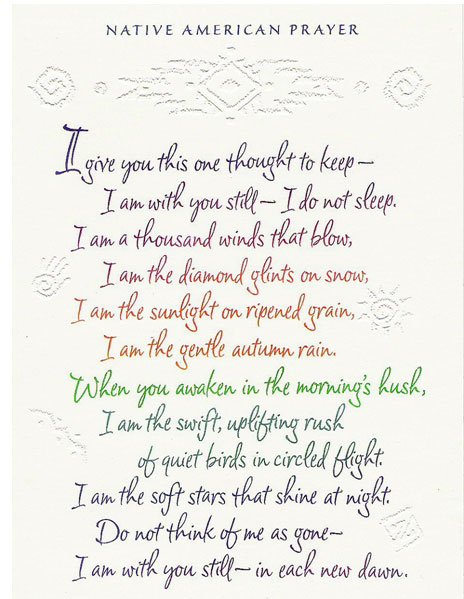 NATIVE AMERICAN PRAYER
I give you this one thought to keep—
I am with you still— I do not sleep.
I am a thousand winds that blow,
I am the diamond glints on snow,
I am the sunlight on ripened grain,
I am the gentle autumn rain.
When you awaken in the morning's hush,
I am the swift, uplifting rush
of quiet birds in circled flight.
I am the soft stars that shine at night.
Do not think of me as gone—
I am with you still— in each new dawn.